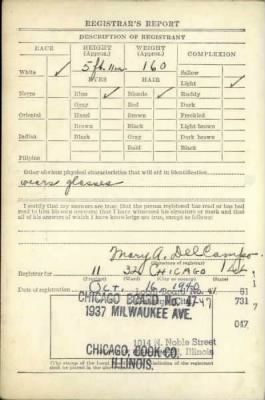 REGISTRAR'S REPORT
DESCRIPTION OF REGISTRANT
RACE HEIGHT (Approx.) WEIGHT (Approx.) COMPLEXION
5 ft. 11 in 160
White ✓ EYES HAIR Sallow
Light ✓
Negro Blue ✓ Blonde ✓ Ruddy
Gray Red Dark
Oriental Hazel Brown Freckled
Brown Black Light brown
Indian Black Gray Dark brown
Bald Black
Filipino
Other obvious physical characteristics that will aid in identification
wears glasses
I certify that my answers are true; that the person registered has read or has had
read to him his own answers; that I have witnessed his signature or mark and that
all of his answers of which I have knowledge are true, except as follows:
Mary A. Del Campo
(Signature of registrar)
Registrar for 11 32 CHICAGO Ill.
Date of registration Oct. 16 1940
CHICAGO BOARD No. 47
1937 MILWAUKEE AVE.
CHICAGO, COOK CO.
ILLINOIS.
Board No. 47
51
731
047
1014 N. Noble Street
Illinois